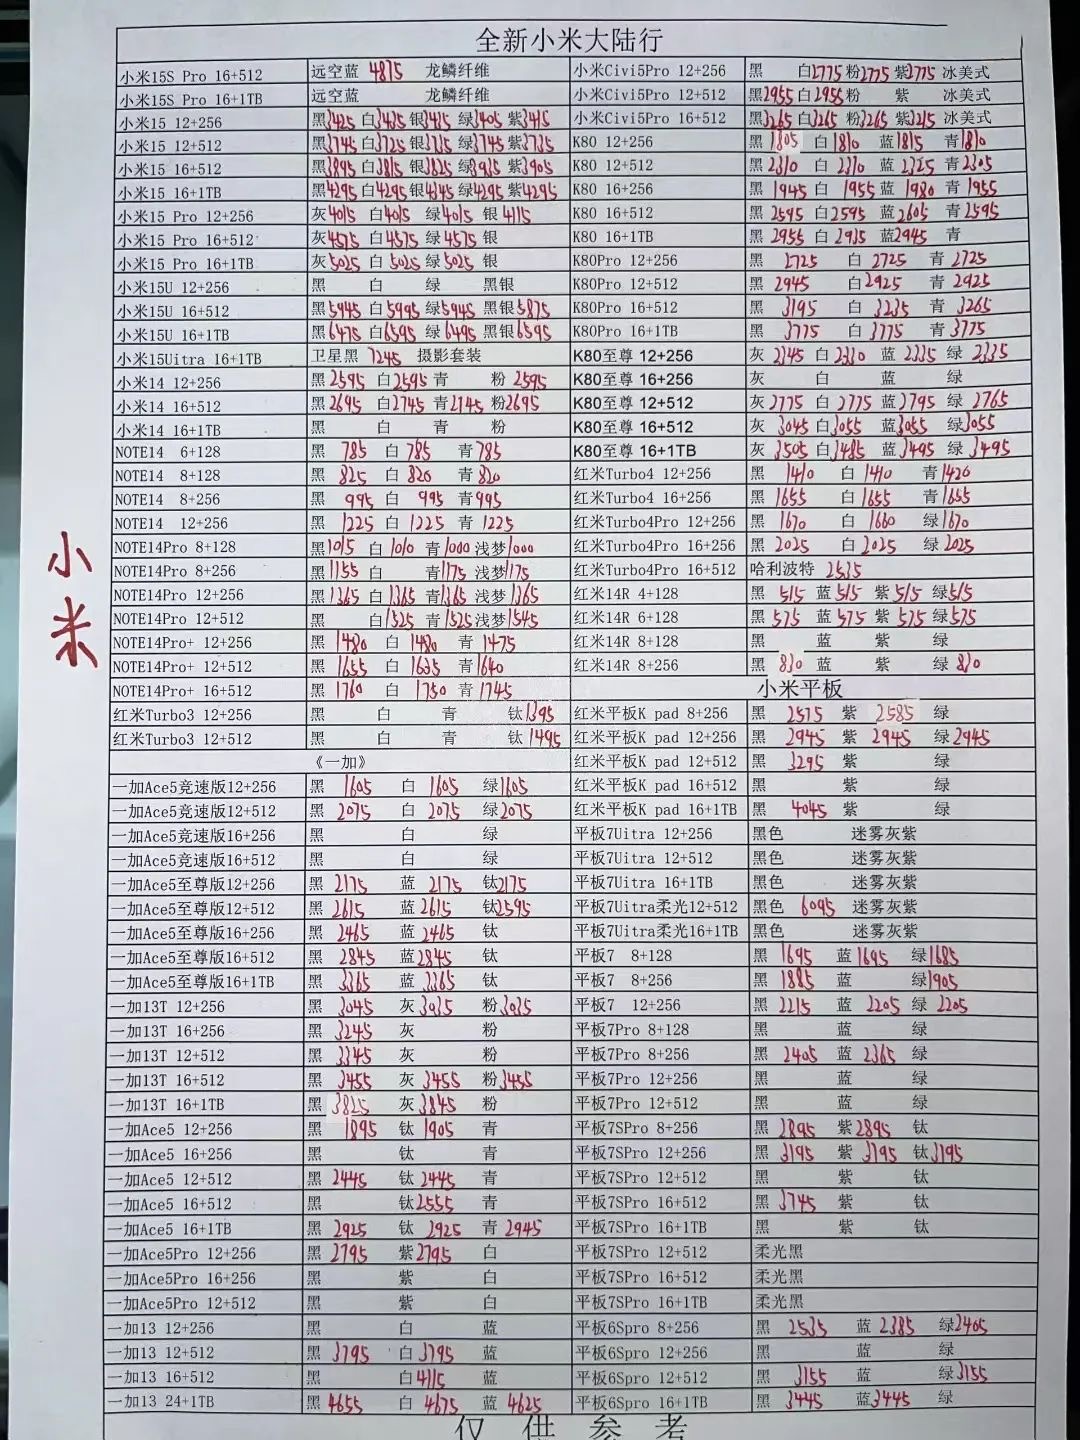 全新小米大陆行
小米15S Pro 16+512 远空蓝 4875 龙鳞纤维 小米Civi5Pro 12+256 黑 白2775 粉2775 紫2775 冰美式
小米15S Pro 16+1TB 远空蓝 龙鳞纤维 小米Civi5Pro 12+512 黑2955 白2955 粉 紫 冰美式
小米15 12+256 黑3425 白3435 银3415 绿3405 紫3415 小米Civi5Pro 16+512 黑3265 白3265 粉3265 紫3215 冰美式
小米15 12+512 黑3745 白3725 银3735 绿3745 紫3735 K80 12+256 黑1805 白1810 蓝1815 青1810
小米15 16+512 黑3895 白3815 银3825 绿3935 紫3905 K80 12+512 黑2310 白2310 蓝2325 青2305
小米15 16+1TB 黑4295 白4295 银4345 绿4295 紫4295 K80 16+256 黑1945 白1955 蓝1980 青1955
小米15 Pro 12+256 灰4015 白4015 绿4015 银4115 K80 16+512 黑2595 白2595 蓝2605 青2595
小米15 Pro 16+512 灰4575 白4575 绿4575 银 K80 16+1TB 黑2955 白2935 蓝2945 青
小米15 Pro 16+1TB 灰5025 白5025 绿5025 银 K80Pro 12+256 黑2725 白2725 青2725
小米15U 12+256 黑 白 绿 黑银 K80Pro 12+512 黑2945 白2925 青2925
小米15U 16+512 黑5945 白5995 绿5945 黑银5875 K80Pro 16+512 黑3195 白3235 青3265
小米15U 16+1TB 黑6475 白6595 绿6495 黑银6595 K80Pro 16+1TB 黑3775 白3775 青3775
小米15Uitra 16+1TB 卫星黑 7245 摄影套装 K80至尊 12+256 灰2345 白2330 蓝2335 绿2335
小米14 12+256 黑2595 白2595 青 粉2595 K80至尊 16+256 灰 白 蓝 绿
小米14 16+512 黑2695 白2745 青2745 粉2695 K80至尊 12+512 灰2775 白2775 蓝2795 绿2765
小米14 16+1TB 黑 白 青 粉 K80至尊 16+512 灰3045 白3055 蓝3055 绿3055
NOTE14 6+128 黑785 白785 青785 K80至尊 16+1TB 灰3505 白3485 蓝3495 绿3495
NOTE14 8+128 黑825 白820 青820 红米Turbo4 12+256 黑1410 白1410 青1420
NOTE14 8+256 黑995 白995 青995 红米Turbo4 16+256 黑1655 白1655 青1655
NOTE14 12+256 黑1225 白1225 青1225 红米Turbo4Pro 12+256 黑1670 白1660 绿1670
NOTE14Pro 8+128 黑1015 白1010 青1000 浅梦1000 红米Turbo4Pro 16+256 黑2025 白2025 绿2025
NOTE14Pro 8+256 黑1155 白 青1175 浅梦1175 红米Turbo4Pro 16+512 哈利波特 2535
NOTE14Pro 12+256 黑1365 白1365 青1365 浅梦1365 红米14R 4+128 黑515 蓝515 紫515 绿515
NOTE14Pro 12+512 黑 白1525 青1525 浅梦1545 红米14R 6+128 黑575 蓝575 紫575 绿575
NOTE14Pro+ 12+256 黑1480 白1480 青1475 红米14R 8+128 黑 蓝 紫 绿
NOTE14Pro+ 12+512 黑1655 白1635 青1640 红米14R 8+256 黑830 蓝 紫 绿830
NOTE14Pro+ 16+512 黑1760 白1750 青1745 小米平板
红米Turbo3 12+256 黑 白 青 钛1395 红米平板K pad 8+256 黑2575 紫2585 绿
红米Turbo3 12+512 黑 白 青 钛1495 红米平板K pad 12+256 黑2945 紫2945 绿2945
《一加》 红米平板K pad 12+512 黑3295 紫 绿
一加Ace5竞速版12+256 黑1605 白1605 绿1605 红米平板K pad 16+512 黑 紫 绿
一加Ace5竞速版12+512 黑2075 白2075 绿2075 红米平板K pad 16+1TB 黑4045 紫 绿
一加Ace5竞速版16+256 黑 白 绿 平板7Uitra 12+256 黑色 迷雾灰紫
一加Ace5竞速版16+512 黑 白 绿 平板7Uitra 12+512 黑色 迷雾灰紫
一加Ace5至尊版12+256 黑2175 蓝2175 钛2175 平板7Uitra 16+1TB 黑色 迷雾灰紫
一加Ace5至尊版12+512 黑2615 蓝2615 钛2595 平板7Uitra柔光12+512 黑色 6095 迷雾灰紫
一加Ace5至尊版16+256 黑2465 蓝2465 钛 平板7Uitra柔光16+1TB 黑色 迷雾灰紫
一加Ace5至尊版16+512 黑2845 蓝2845 钛 平板7 8+128 黑1695 蓝1695 绿1685
一加Ace5至尊版16+1TB 黑3365 蓝3365 钛 平板7 8+256 黑1885 蓝 绿1905
一加13T 12+256 黑3045 灰3035 粉3035 平板7 12+256 黑2215 蓝2205 绿2205
一加13T 16+256 黑3245 灰 粉 平板7Pro 8+128 黑 蓝 绿
一加13T 12+512 黑3345 灰 粉 平板7Pro 8+256 黑2405 蓝2365 绿
一加13T 16+512 黑3455 灰3455 粉3455 平板7Pro 12+256 黑 蓝 绿
一加13T 16+1TB 黑3825 灰3845 粉 平板7Pro 12+512 黑 蓝 绿
一加Ace5 12+256 黑1895 钛1905 青 平板7SPro 8+256 黑2895 紫2895 钛
一加Ace5 16+256 黑 钛 青 平板7SPro 12+256 黑3195 紫3195 钛3195
一加Ace5 12+512 黑2445 钛2445 青 平板7SPro 12+512 黑 紫 钛
一加Ace5 16+512 黑 钛2555 青 平板7SPro 16+512 黑3745 紫 钛
一加Ace5 16+1TB 黑2925 钛2925 青2945 平板7SPro 16+1TB 黑 紫 钛
一加Ace5Pro 12+256 黑2795 紫2795 白 平板7SPro 12+512 柔光黑
一加Ace5Pro 16+256 黑 紫 白 平板7SPro 16+512 柔光黑
一加Ace5Pro 12+512 黑 紫 白 平板7SPro 16+1TB 柔光黑
一加13 12+256 黑 白 蓝 平板6Spro 8+256 黑2535 蓝2385 绿2405
一加13 12+512 黑3795 白3795 蓝 平板6Spro 12+256 黑 蓝 绿
一加13 16+512 黑 白4115 蓝 平板6Spro 12+512 黑3155 蓝 绿3155
一加13 24+1TB 黑4655 白4675 蓝4625 平板6Spro 16+1TB 黑3445 蓝3445 绿
仅供参考
小米